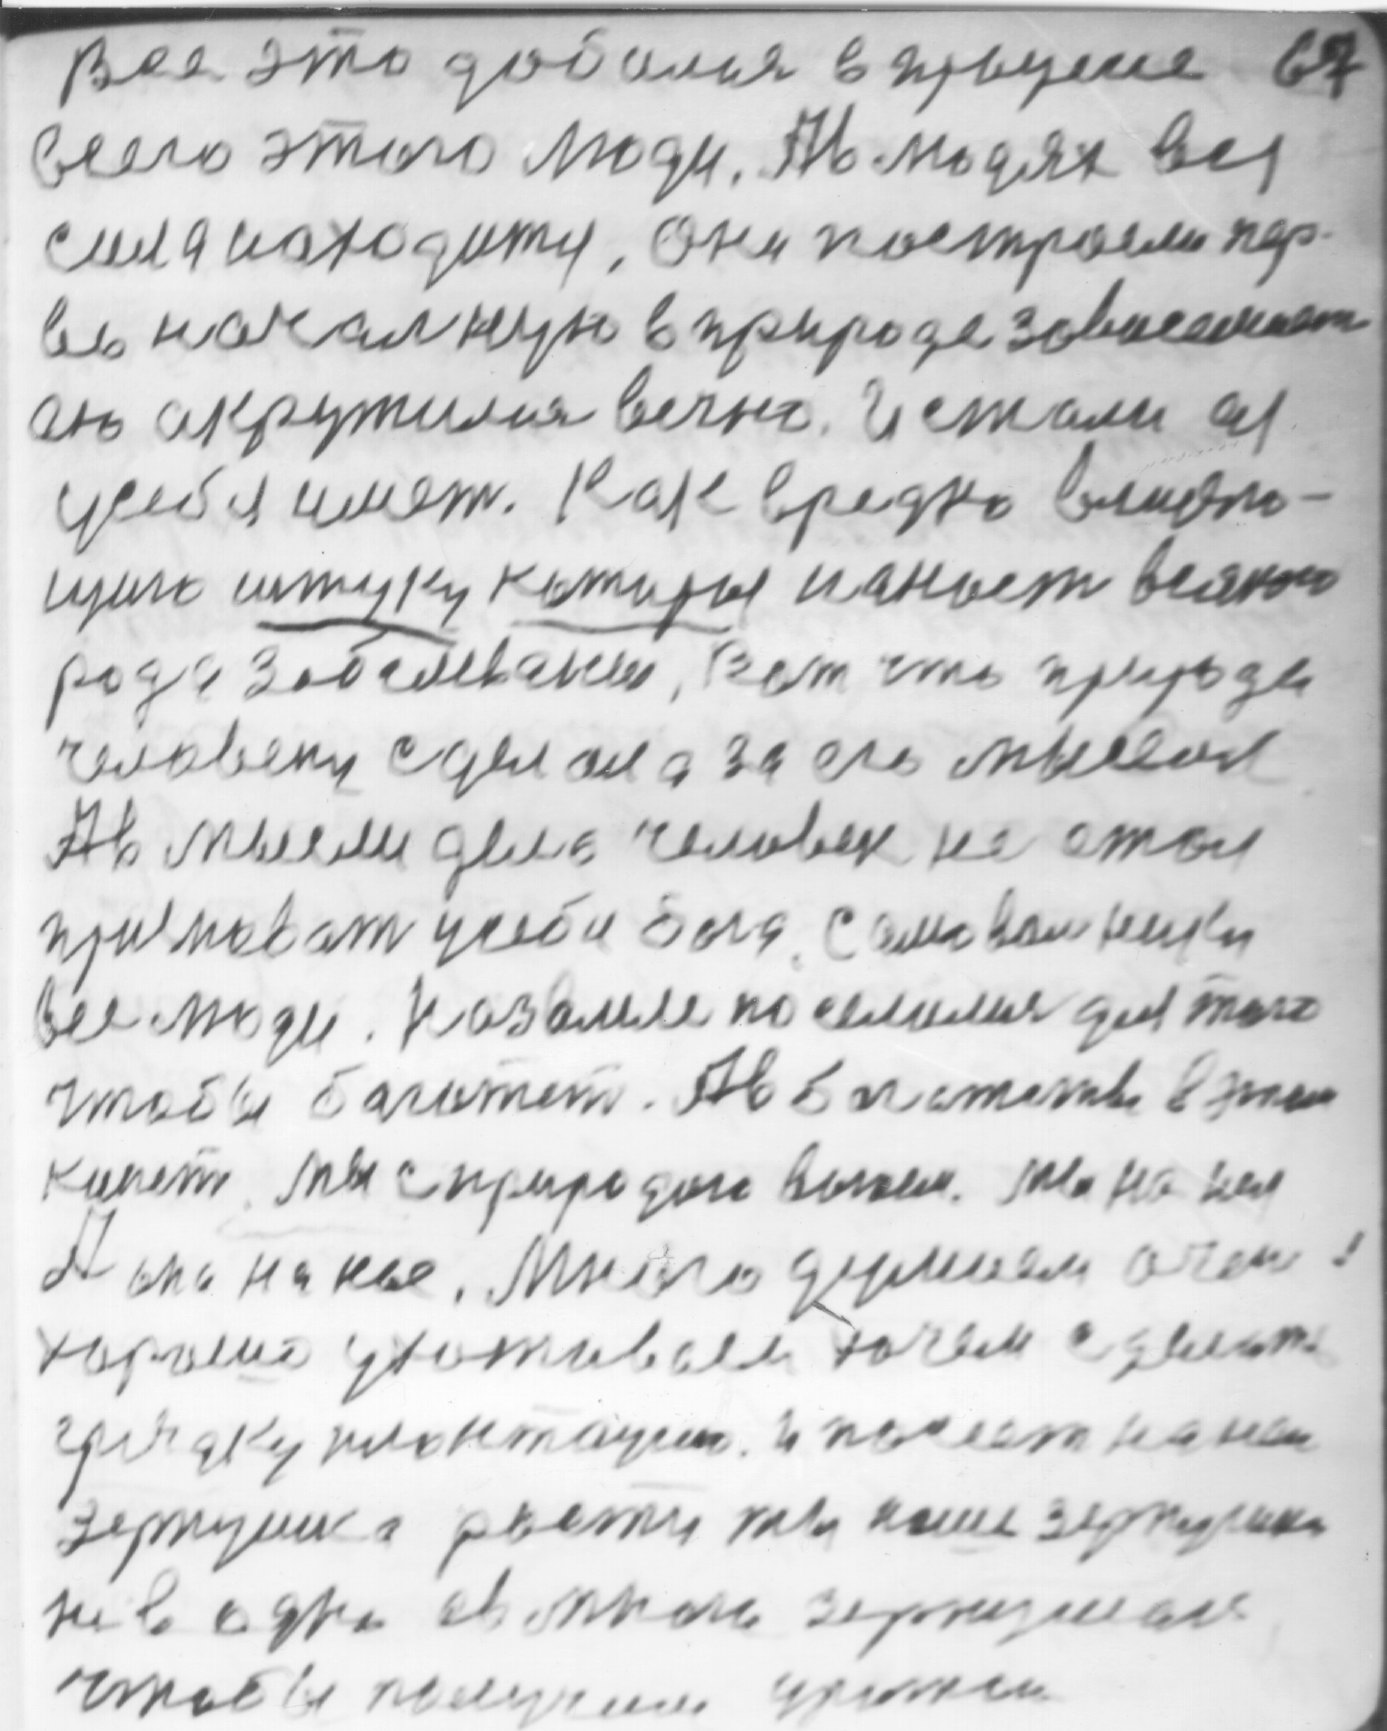 Все это добился в процесе 67
всего этого люди. Ав людях вся
сила находитя, Они построели пер-
во начал ную в природе зависемаст
ею акружился вечно. И стали ая
усебя имет. Как вредно влияю-
щию штуку каторая наност всякого
рода заболевание, Вот что природа
человеку сделала за его мыссл
Ав мысли дело человек не стал
призноват усебя бога. Самовольники
все люди. На земле поселился для того
чтобы багатет. Ав багатстве в этом
кипет. мы с природою воюем. Мы на нея
А она на нас. Много думаем очен !
хорошо ухаживаем хочем сделать
грядку плантацию. И посеет на ней
зернушка расти мы наше зернушка
не в одно ав много зернушках
чтобы получили урожай